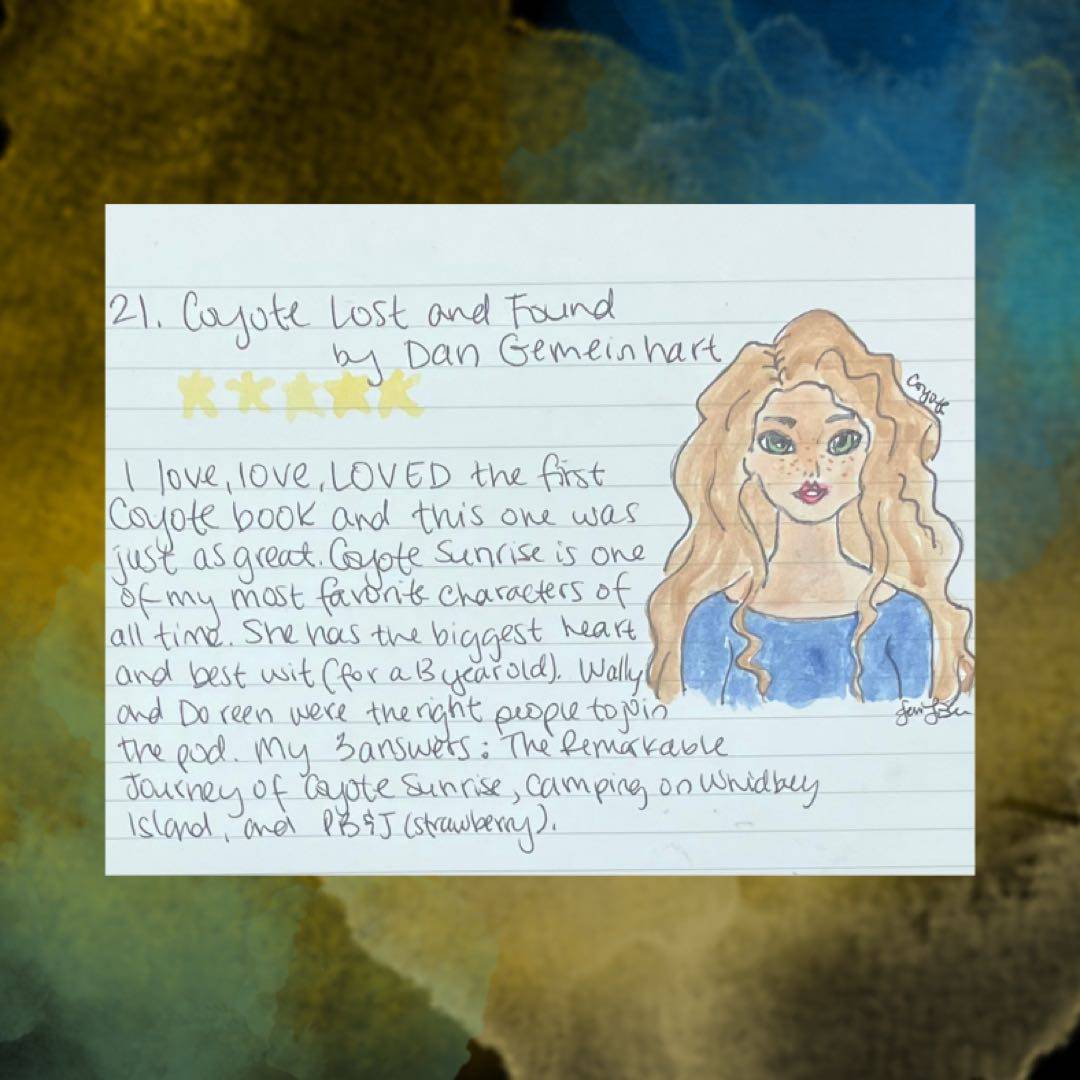 21. Coyote Lost and Found
by Dan Gemeinhart
Coyote
I love, love, LOVED the first
Coyote book and this one was
just as great. Coyote Sunrise is one
of my most favorite characters of
all time. She has the biggest heart
and best wit (for a 13 year old). Wally
and Doreen were the right people to join
the pod. My 3 answers: The Remarkable
Journey of Coyote Sunrise, camping on Whidbey
Island, and PB&J (strawberry).